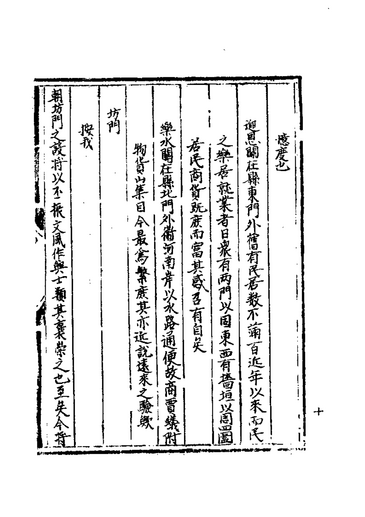 憶慶也
迎恩關在縣東門外舊有民居數不滿百近年以來而民
之樂居就業者日衆有两門以固東西有墻垣以周四圍
居民商貨既庶而富其盛名有自矣
樂水關在縣北門外衛河南岸以水路通便故商賈蟻附
物貨山集自今最為繁庶其亦近說遠來之驗歟
坊門
按我
朝坊門之設將以丕振文風作興士類其褒崇之也至矣今
十